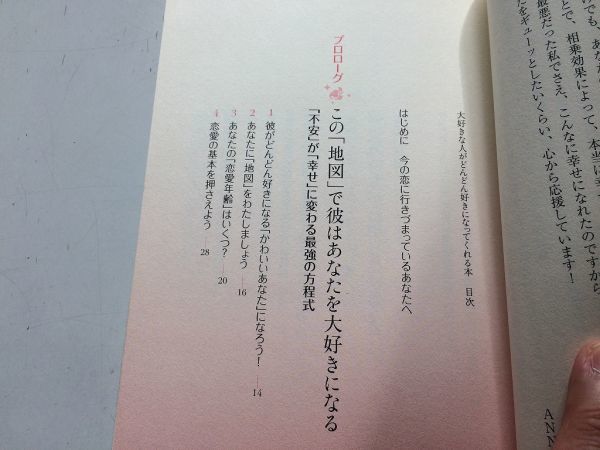 けでも、あなた
最悪だった私でさえ、こんなに幸せになれたのですから
とで、相乗効果によって、本当に幸せ
たをギューッとしたいくらい、心から応援しています！
ANN
大好きな人がどんどん好きになってくれる本　目次
はじめに　今の恋に行きづまっているあなたへ
プロローグ
この「地図」で彼はあなたを大好きになる
「不安」が「幸せ」に変わる最強の方程式
1 彼がどんどん好きになる「かわいいあなた」になろう！ 14
2 あなたに「地図」をわたしましょう 16
3 あなたの「恋愛年齢」はいくつ？ 20
4 恋愛の基本を押さえよう 28